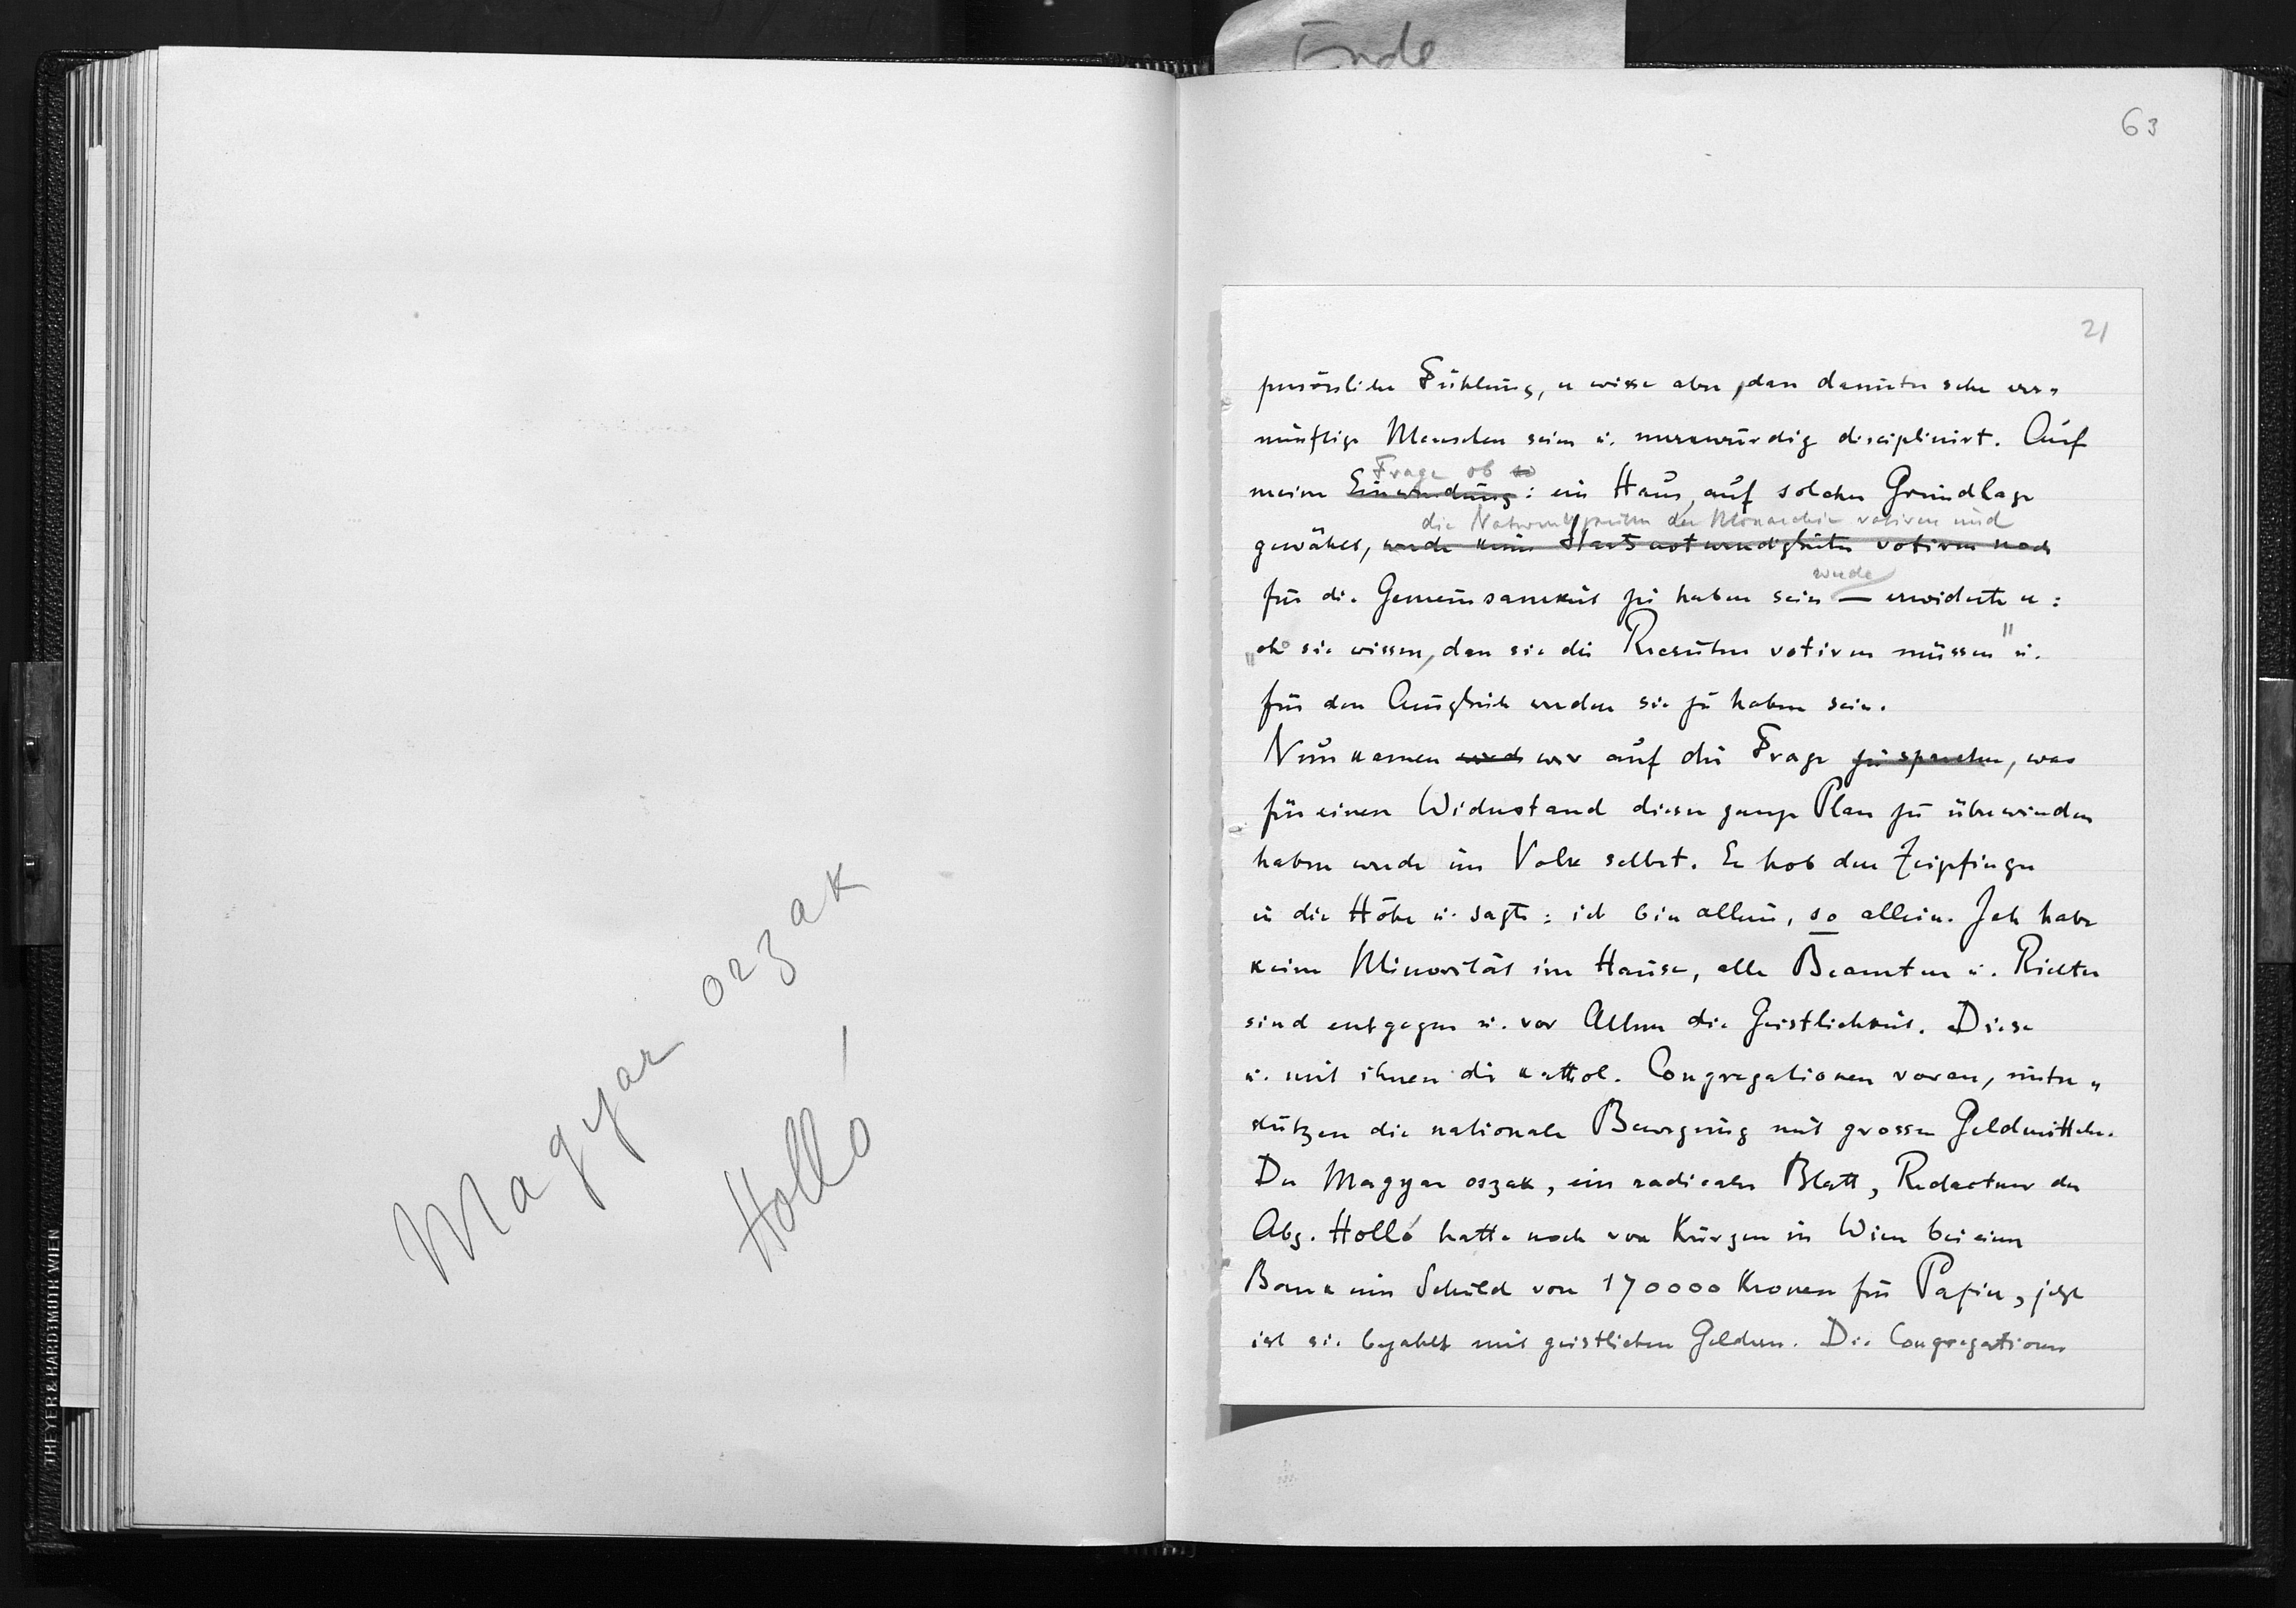 Ende
63
Magyar orzak
Holló
21
persönliche Fühlung, er wisse aber, dass darunter sehr ver-
nünftige Menschen seien u. merkwürdig disciplinirt. Auf
Frage ob so
meine Einwendung: ein Haus, auf solcher Grundlage
die Notwendigkeiten der Monarchie votiren und
gewählt, werde keine Staatsnotwendigkeiten votiren noch
werde
für die Gemeinsamkeit zu haben sein — erwiderte er:
„oh sie wissen, dass sie die Recruten votiren müssen" u.
für den Ausgleich werden sie zu haben sein.
Nun kamen wir auf die Frage zu sprechen, was
für einen Widerstand dieser ganze Plan zu überwinden
haben werde im Volk selbst. Er hob den Zeigefinger
in die Höhe u. sagte: ich bin allein, so allein. Ich habe
keine Minorität im Hause, alle Beamten u. Richter
sind entgegen u. vor Allem die Geistlichkeit. Diese
u. mit ihnen die kathol. Congregationen voran, unter-
stützen die nationale Bewegung mit grossen Geldmitteln.
Der Magyar oszak, ein radicales Blatt, Redacteur der
Abg. Holló hatte noch vor Kurzem in Wien bei einer
Bank eine Schuld von 170000 Kronen für Papier, jetzt
ist sie bezahlt mit geistlichen Geldern. Die Congregationen